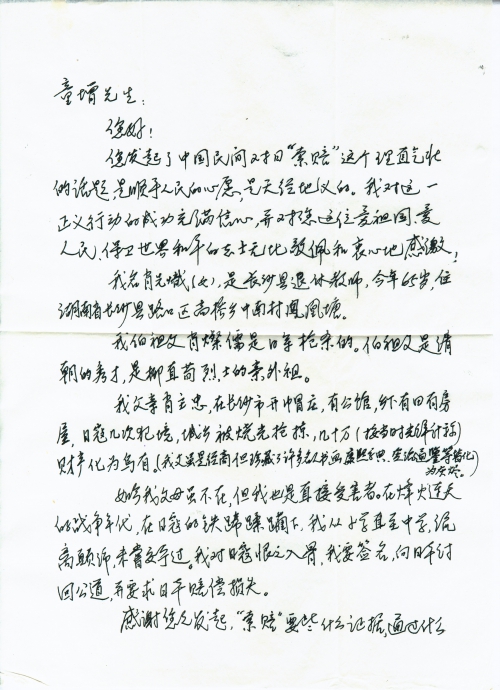 童增先生：
您好！
您发起了中国民间对日“索赔”这个理直气壮
的话题，是顺乎人民的心愿，是天经地义的。我对这一
正义行动的成功充满信心，并对您这位爱祖国、爱
人民，保卫世界和平的志士无比敬佩和衷心地感激！
我名肖先(女)，是长沙县退休教师，今年65岁，住
湖南省长沙县路口区高桥乡中南村凤凰塘。
我伯祖父肖燦儒是日军枪杀的。伯祖父是清
朝的秀才，是柳直荀烈士的亲外祖。
我父亲肖主忠，在长沙市开帽店，有公馆，乡有田有房
屋，日寇几次犯境，城乡被烧光抢掠，几十万(按当时光洋计算)
财产化为乌有，(我父虽是经商但珍藏了许多名人书画康熙字典、资治通鉴等皆化
为灰烬。)
如今我父母虽不在，但我也是直接受害者。在烽火连天
的战争年代，在日寇的铁蹄蹂躏下，我从小学直至中学，流
离颠沛，未曾安宁过。我对日寇恨之入骨，我要签名，向日军讨
回公道，并要求日军赔偿损失。
感谢您的发起，“索赔”要些什么证据，通过什么